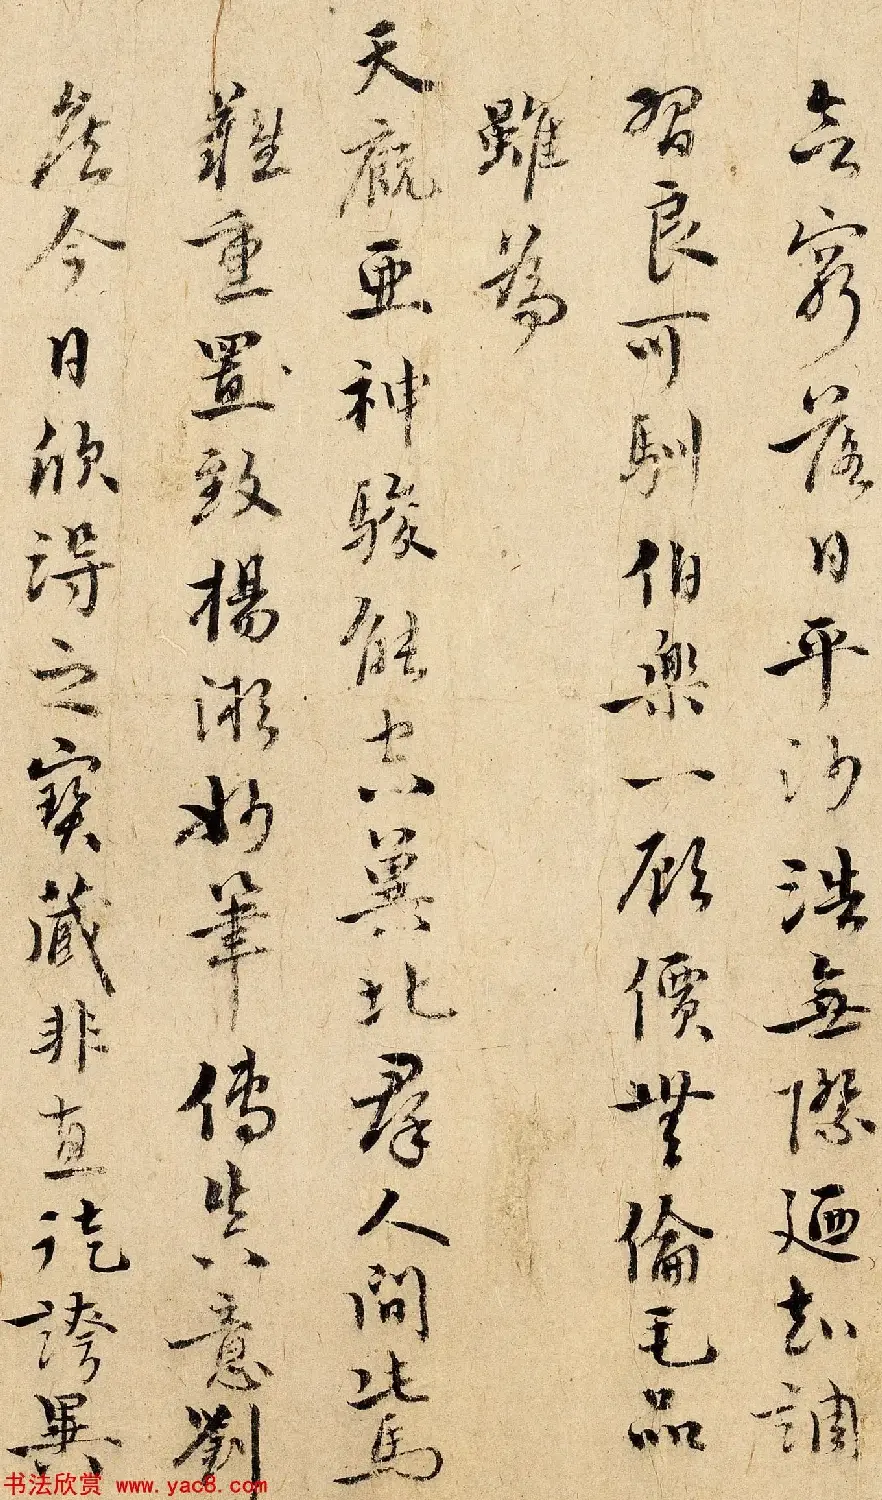 窮落日平沙浩無際迺知調
習良可馴伯樂一顧價無倫毛品
雖為
天廄亞神駿能空冀北群人間此馬
難重置致楊妙筆傳真意劉
侯今日欣得之寶藏非直詫誇異
书法欣赏 www.yac8.com